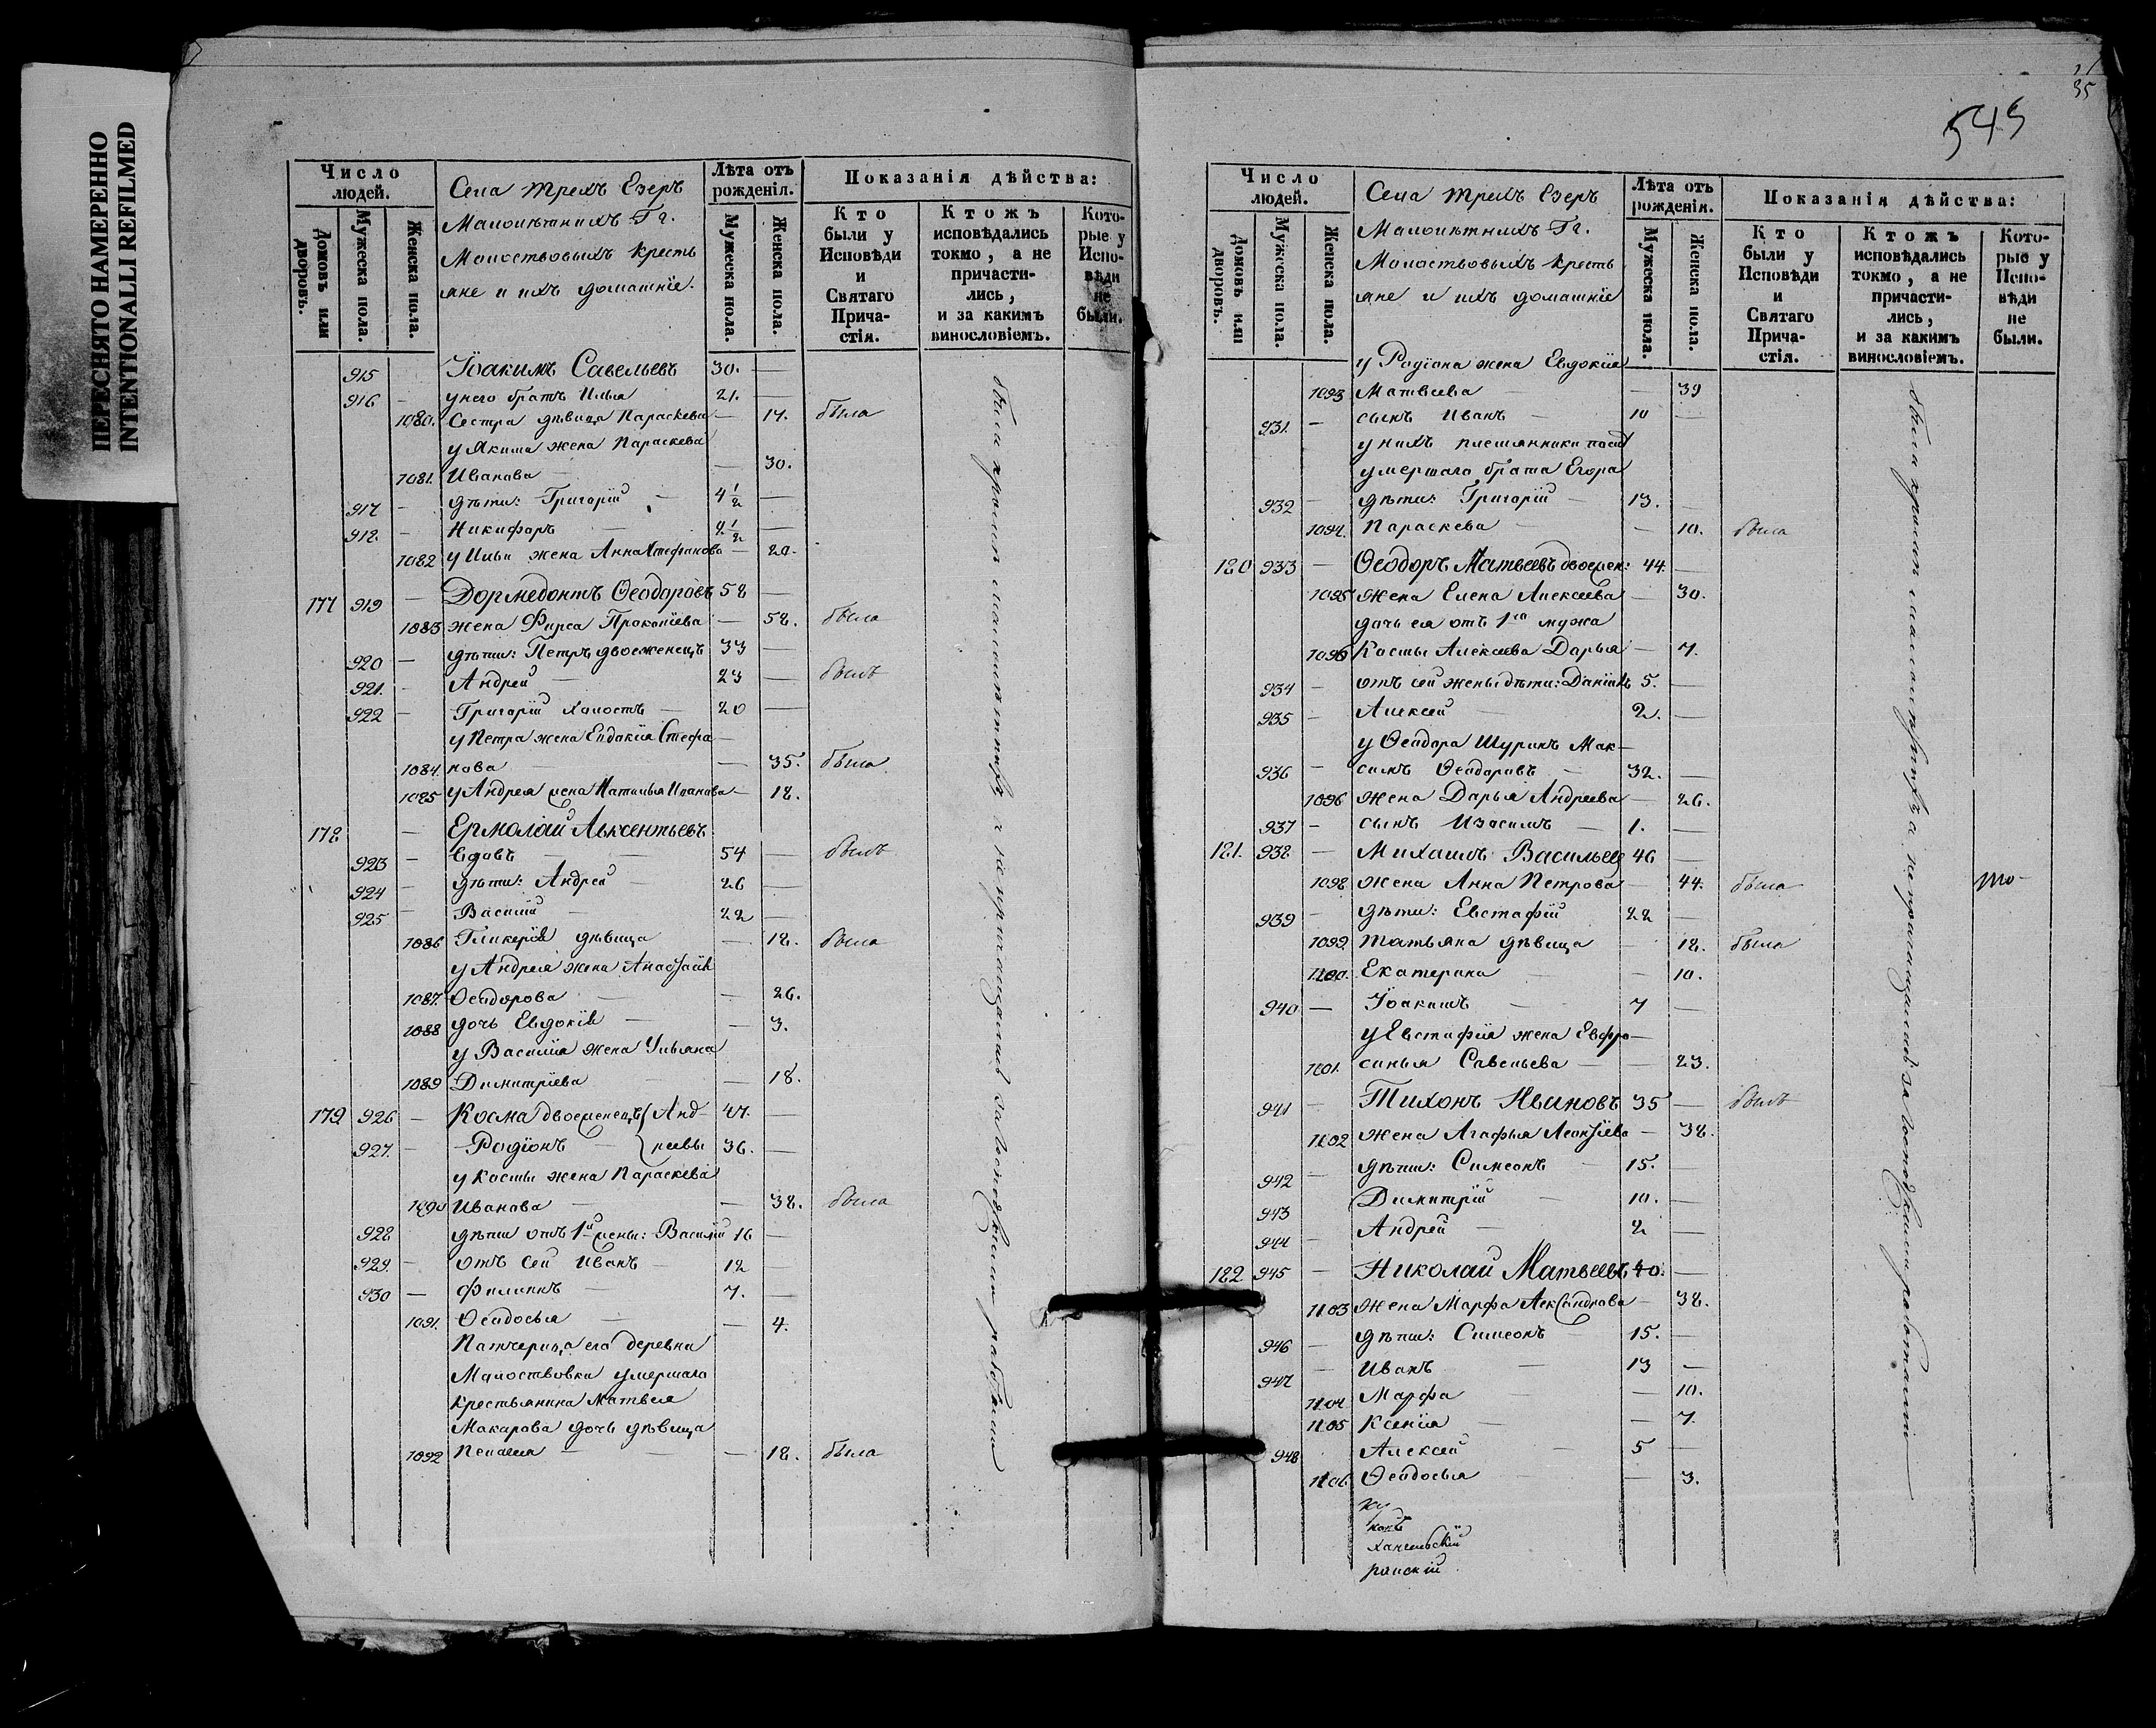 ПЕРЕСНЯТО НАМЕРЕННО
INTENTIONALLI REFILMED
Число людей.
Домовъ или дворовъ.
Мужеска пола.
Женска пола.
Села трехъ Езеръ
Малолѣтнихъ Гг.
Молоствовыхъ кресть
яне и ихъ домашніе.
Лѣта отъ рожденія.
Мужеска пола.
Женска пола.
Показанія дѣйства:
Кто были у Исповѣди и Святаго Прича-стія.
Ктожъ исповѣдались токмо, а не причасти-лись, и за какимъ винословіемъ.
Кото-рые у Испо-вѣди не были.
915 Іоакимъ Савельевъ 30. —
916 — у него братъ Илья 21. —
1080. Сестра дѣвица Параскева — 17. была
у Якима жена Параскева
1081. Иванова — — 30.
917 — дѣти: Григорій — 4 1/2 —
918. — Никифоръ — 2 1/2 —
1082 у Ильи жена Анна Стефанова — 20.
177 919 — Дормедонтъ Ѳеодоровъ 58 —
1083 жена Фирса Прокопіева — 58. была
920 — дѣти: Петръ двоеженецъ 33 —
921. — Андрей — 23 — былъ
922 — Григорій холостъ — 20 —
у Петра жена Евдокія Стефа-
1084. нова — — 35. была
1085 у Андрея жена Наталья Иванова — 18.
178 — Ермолай Авксентьевъ
923 — вдовъ — 54 — былъ
924 — дѣти: Андрей — 26 —
925 — Василій — 22 —
1086 Гликерія дѣвица — 18. была
у Андрея жена Анастасія
1087. Ѳеодорова — — 26.
1088 дочь Евдокія — — 3.
у Василія жена Ульяна
1089 Димитріева — — 18.
179 926 — Косма двоеженецъ { Анд- 47. —
927. — Родіонъ — } реевы 36. —
у Косьмы жена Параскева
1090 Иванова — — 38. была
928 дѣти отъ 1й жены: Василій 16 —
929. — отъ сей Иванъ — 12 —
930 — Филиппъ — 7. —
1091. Ѳеодосья — — 4.
Патчерица его деревни
Молостовки умершаго
крестьянина Матвея
Макарова дочь дѣвица
1092 Пелагея — — 18. была
были кромѣ малолѣтнихъ а не причащались за господскими работами
35
545
Число людей.
Домовъ или дворовъ.
Мужеска пола.
Женска пола.
Села трехъ Езеръ
Малолѣтнихъ Гг.
Молоствовыхъ кресть
яне и ихъ домашніе
Лѣта отъ рожденія.
Мужеска пола.
Женска пола.
Показанія дѣйства:
Кто были у Исповѣди и Святаго Прича-стія.
Ктожъ исповѣдались токмо, а не причасти-лись, и за какимъ винословіемъ.
Кото-рые у Испо-вѣди не были.
у Родіона жена Евдокія
1093 Матвеева — — 39
931. — сынъ Иванъ — 10 —
у нихъ племянники послѣ
умершаго брата Егора
932 — дѣти: Григорій — 13. —
1094. Параскева — — 10. была
180 933 — Ѳеодоръ Матвеевъ двоежен: 44. —
1095 жена Елена Алексеева — 30.
дочь ея отъ 1го мужа
1096 Косьмы Алексеева Дарья — 7.
934 — отъ сей жены дѣти: Даніилъ 5. —
935 — Алексей — 2. —
у Ѳеодора Шуринъ Мак-
936 — симъ Ѳеодоровъ — 32. —
1096 жена Дарья Андреева — 26.
937 — сынъ Изосимъ — 1. —
181. 938 — Михаилъ Васильевъ 46 —
1098 жена Анна Петрова — 44. была
939 — дѣти: Евстафій 22 —
1099. Татьяна дѣвица — 18. была
1100. Екатерина — — 10.
940 — Іоакимъ — 7 —
у Евстафія жена Евфро-
1101. синья Савельева — — 23.
941 — Тихонъ Ивановъ 35 — былъ
1102 жена Агафья Леонтіева — 38.
942 — дѣти: Симеонъ — 15. —
943 Димитрій — 10. —
944 — Андрей — 2 —
182 945 — Николай Матвеевъ 40. —
1103 жена Марфа Александрова — 38.
946 — дѣти: Симеонъ — 15. —
947 — Иванъ — 13 —
1104 Марфа — 10.
1105 Ксенія — — 7.
948 Алексей — 5 —
1106. Ѳеодосья — — 3.
были кромѣ малолѣтнихъ а не причащались за господскими работами